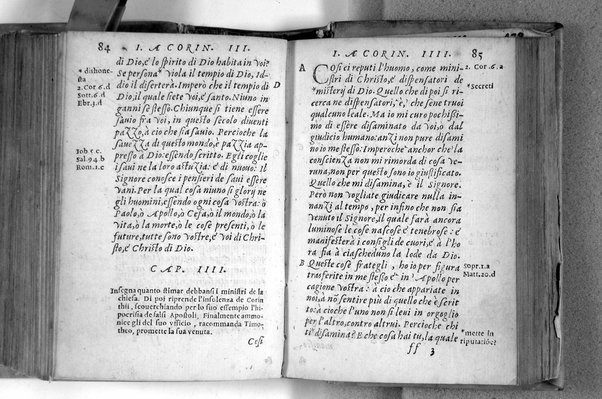 84 I. A CORIN. III.
di Dio, e lo spirito di Dio habita in voi?
* dishonesta
Se persona* viola il tempio di Dio, Iddio
il disertera. Impero che il tempio di
2. Cor. 6. d
Sott. 6. d
Ebr. 3. d
Dio, il quale siete voi, è santo. Niuno in D
ganni se stesso. Chiunque si tiene essere
sauio fra voi, in questo secolo diuenti
pazzo, à cio che sia sauio. Percioche la
sauezza di questo mondo, è pazzia ap-
Iob 5. c.
Sal. 94. b
Rom. 1. c
presso à Dio: essendo scritto. Egli coglie
i saui ne la loro astuzia: e di nuouo: Il
Signore conosce i pensieri de saui essere
vani. Per la qual cosa niuno si glorij ne
gli huomini, essendo ogni cosa vostra: ò
Paolo, ò Apollo, ò Cefa, ò il mondo, ò la
vita, ò la morte, ò le cose presenti, ò le
future, tutte sono vostre, e voi di Chri-
sto, e Christo di Dio.
CAP. IIII.
Insegna quanto stimar debbansi i ministri de la
chiesa. Di poi riprende l'insolenza de Corin
thii, scouerchiando per lo suo essempio l'hi-
pocrisia de falsi Apostoli. Finalmente ammo-
nice gli del suo vfficio, raccomanda Timo-
theo, promette la sua venuta.
Cosi
I. A CORIN. IIII. 85
A Cosi ci reputi l'huomo, come mini- 2. Cor. 6. a
stri di Christo, e dispensatori de
* misterij di Dio. Quello che di poi si ri- * Secreti
cerca ne dispensatori, è, che sene truoui
qualcuno leale. Ma io mi curo pochissi-
mo di essere disaminato da voi, ò dal
giudicio humano: anzi non pure disami
no io me stesso: Imperoche anchor che la
conscienza non mi rimorda di cosa ve-
runa, non per questo sono io giustificato.
Quello che mi disamina, è il Signore.
Però non vogliate giudicare nulla in-
nanzi al tempo, per infino che non sia
venuto il Signore, Il quale farà ancora
luminose le cose nascose e tenebrose: e
manifesterà i consigli de cuori, e à l'ho
ra fia à ciascheduno la lode da Dio.
B Queste cose frategli, ho io per figura Sopr. 1. a
trasferite in me stesso e in Apollo per Matt. 20. d
cagione vostra: à cio che appariate in
noi, à nō sentire piu di quello che è scrit
to: à cioche l'uno non si leui in orgoglio
per l'altro, contro altrui. Percioche chi
ti* disamina? E che cosa hai tu, la quale *mette in
riputacioē?
ff 3